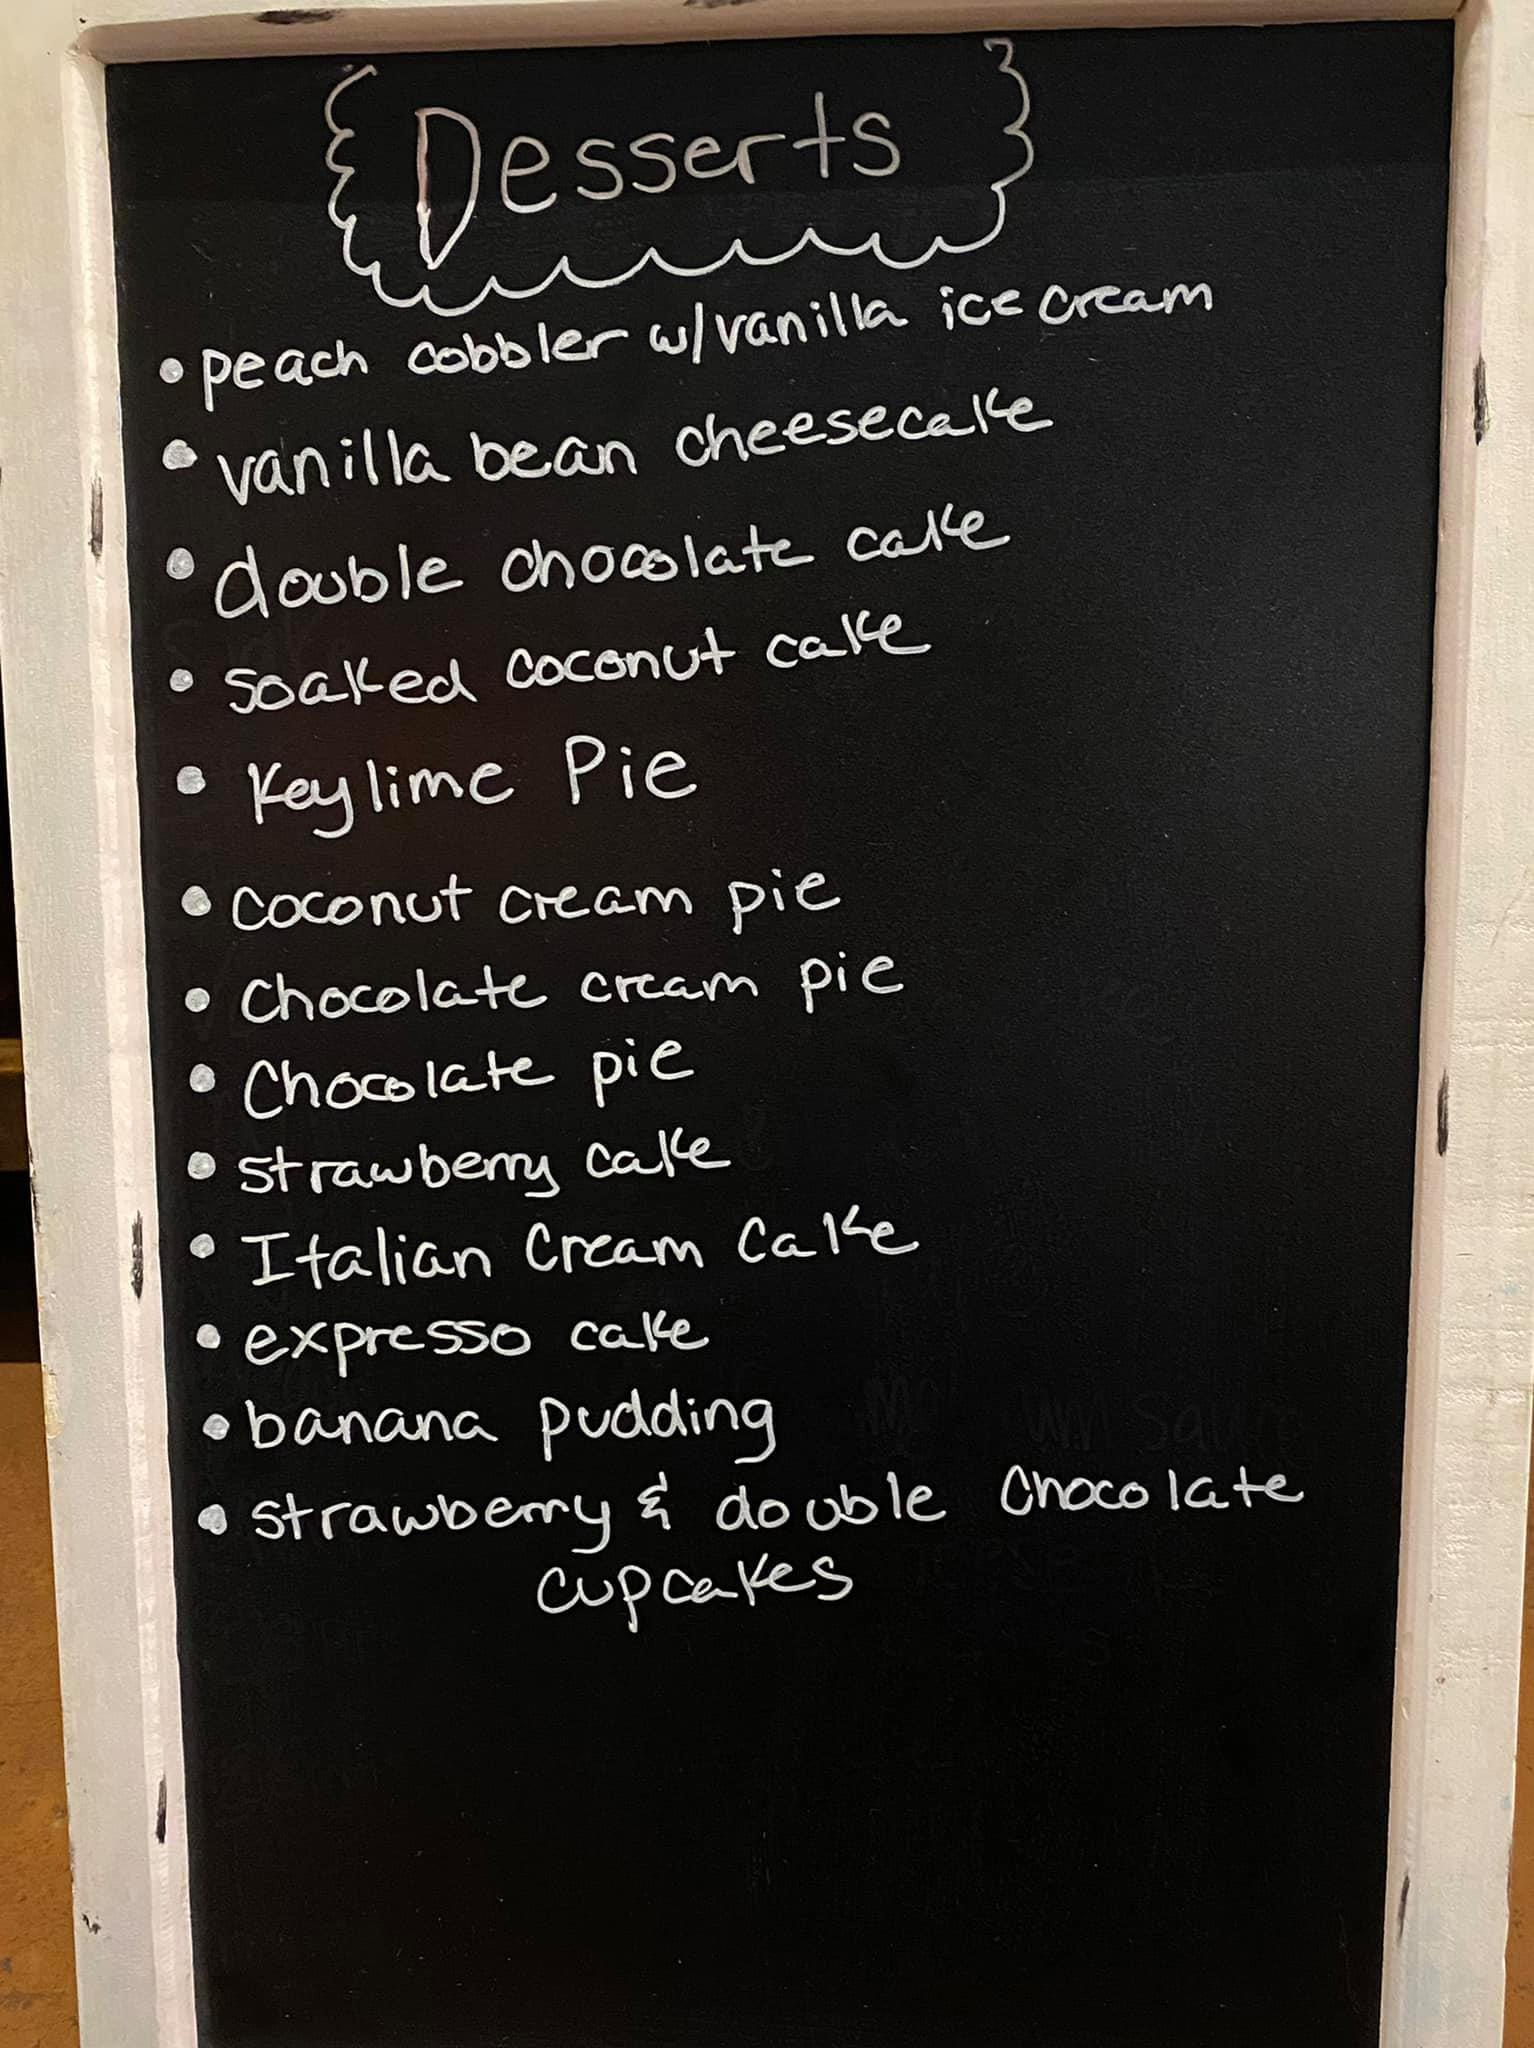 Desserts
• peach cobbler w/vanilla ice cream
• vanilla bean cheesecake
• double chocolate cake
• soaked coconut cake
• Keylime Pie
• coconut cream pie
• Chocolate cream pie
• Chocolate pie
• strawberry cake
• Italian Cream Cake
• expresso cake
• banana pudding
• strawberry & double Chocolate
cupcakes